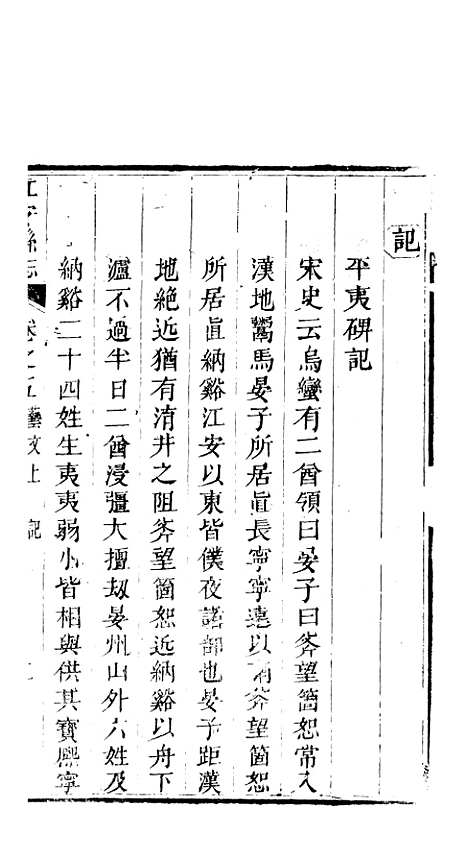 記
平夷碑記
宋史云烏蠻有二酋領曰晏子曰斧望箇恕常入
漢地鬻馬晏子所居直長寧寧遠以南斧望箇恕
所居直納谿江安以東皆僕夜諸部也晏子距漢
地絶近猶有淯井之阻斧望箇恕近納谿以舟下
瀘不過半日二酋浸彊大擅劫晏州山外六姓及
納谿二十四姓生夷夷弱小皆相與供其寶熙寧
江安縣志 卷之五藝文上 記